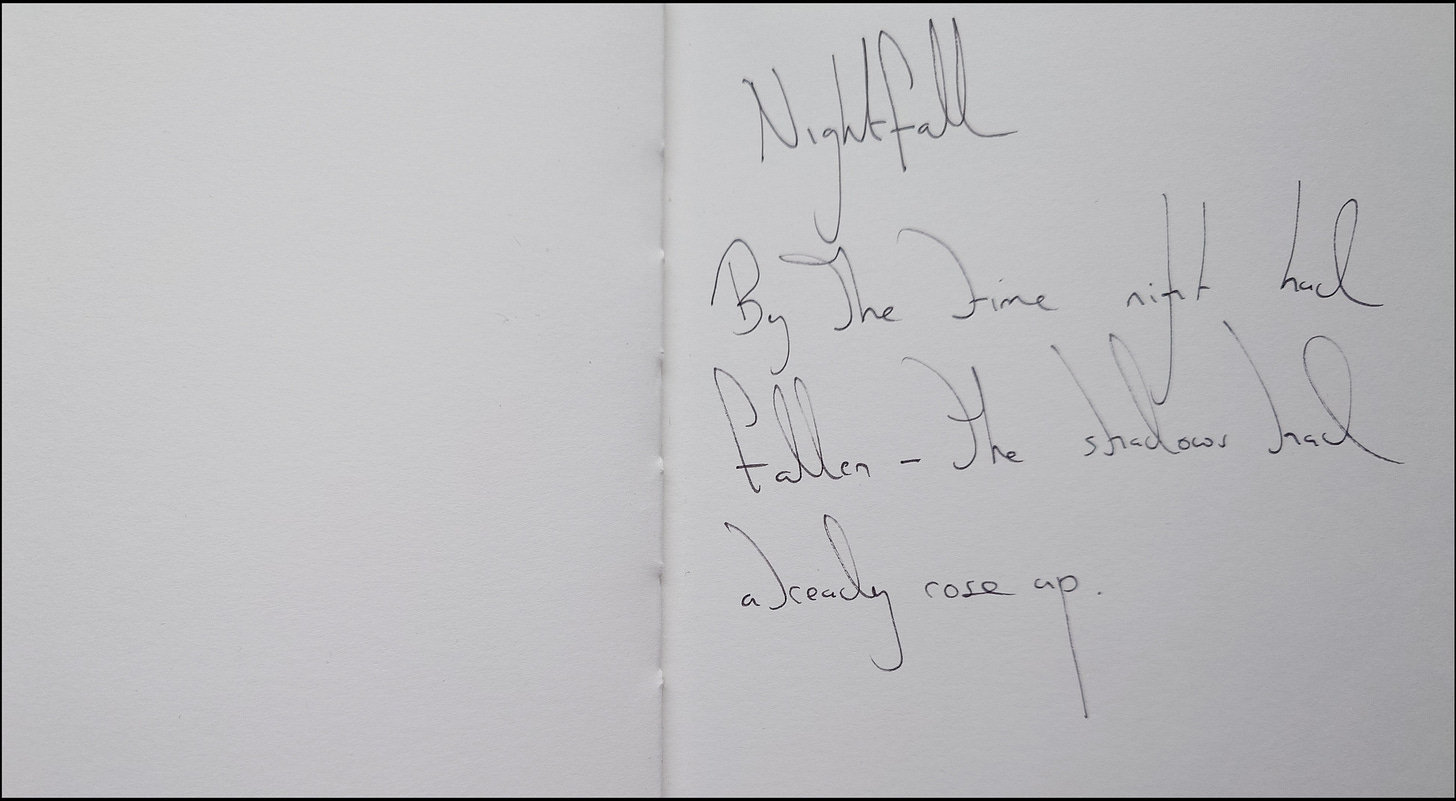 Nightfall
By The Time night had
fallen – The shadows had
already rose up.